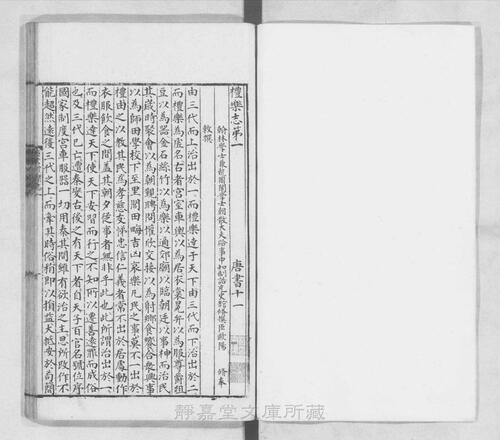 禮樂志第一　唐書十一
翰林學士兼龍圖閣學士朝散大夫給事中知制誥充史館修撰臣歐陽　脩奉
敕撰
由三代而上治出於一而禮樂達于天下由三代而下治出於二
而禮樂為虛名古者宮室車輿以為居衣裳冕弁以為服尊爵俎
豆以為器金石絲竹以為樂以適郊廟以臨朝廷以事神而治民
其歲時聚會以為朝覲聘問懽欣交接以為射鄉食饗合衆興事
以為師田學校下至里閭田畝吉凶哀樂凡民之事莫不一出於
禮由之以教其民為孝慈友悌忠信仁義者常不出於居處動作
衣服飲食之間蓋其朝夕從事者無非乎此也此所謂治出於一
而禮樂達天下使天下安習而行之不知所以遷善遠罪而成俗
也及三代已亡遭秦變古後之有天下者自天子百官名號位序
國家制度宮車服器一切用秦其間雖有欲治之主思所改作不
能超然遠復三代之上而牽其時俗稍即以損益大抵安於苟簡
靜嘉堂文庫所藏